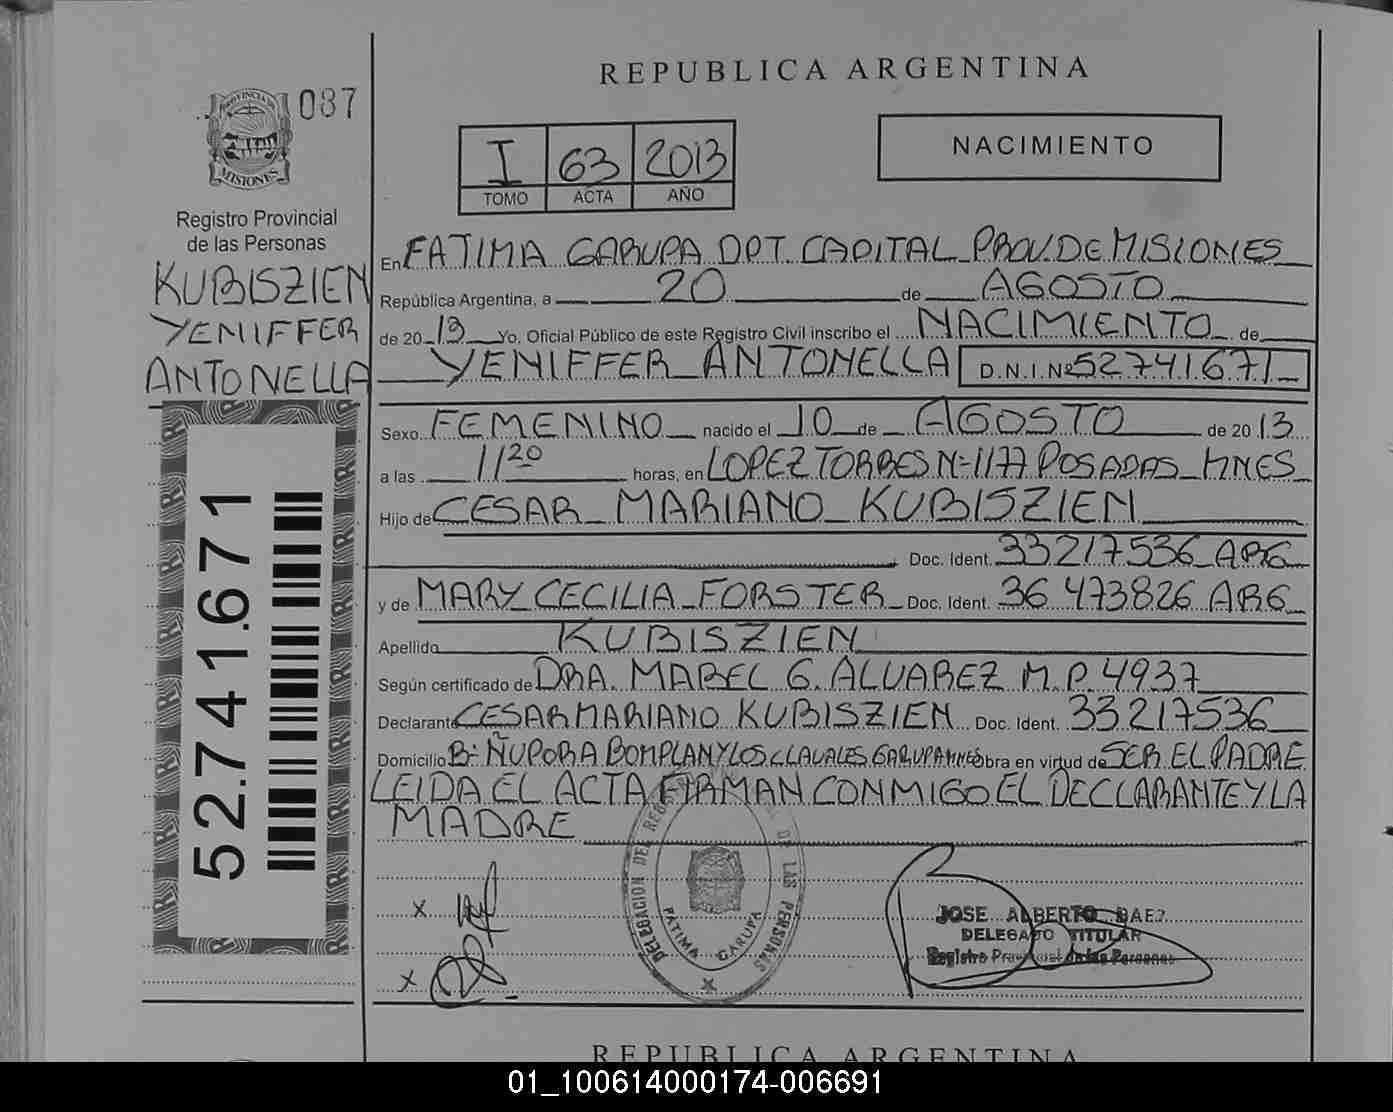 REPUBLICA ARGENTINA
087
PROVINCIA DE
MISIONES
Registro Provincial
de las Personas
KUBISZIEN
YENIFFER
ANTONELLA
52.741.671
I 63 2013
TOMO ACTA AÑO
NACIMIENTO
En FATIMA GARUPA DPT. CAPITAL PROV. DE MISIONES
República Argentina, a 20 de AGOSTO
de 20 13 Yo, Oficial Público de este Registro Civil inscribo el NACIMIENTO de
YENIFFER ANTONELLA D.N.I.Nº 52.741.671
Sexo FEMENINO nacido el 10 de AGOSTO de 20 13
a las 11 20 horas, en LOPEZ TORRES Nº 1177 POSADAS MNES
Hijo de CESAR MARIANO KUBISZIEN
Doc. Ident. 33217536 ARG
y de MARY CECILIA FORSTER Doc. Ident. 36 473826 ARG
Apellido KUBISZIEN
Según certificado de DRA. MABEL G. ALVAREZ M.P. 4937
Declarante CESAR MARIANO KUBISZIEN Doc. Ident. 33217536
Domicilio Bº ÑUPORA BOMPLAN Y LOS CLAVALES GARUPA MNES obra en virtud de SER EL PADRE
LEIDA EL ACTA FIRMAN CONMIGO EL DECLARANTE Y LA
MADRE
DELEGACION DEL DE LAS PERSONAS
FATIMA GARUPA
X
X
JOSE ALBERTO BAEZ
DELEGADO TITULAR
Registro Provincial de las Personas
REPUBLICA ARGENTINA
01_100614000174-006691